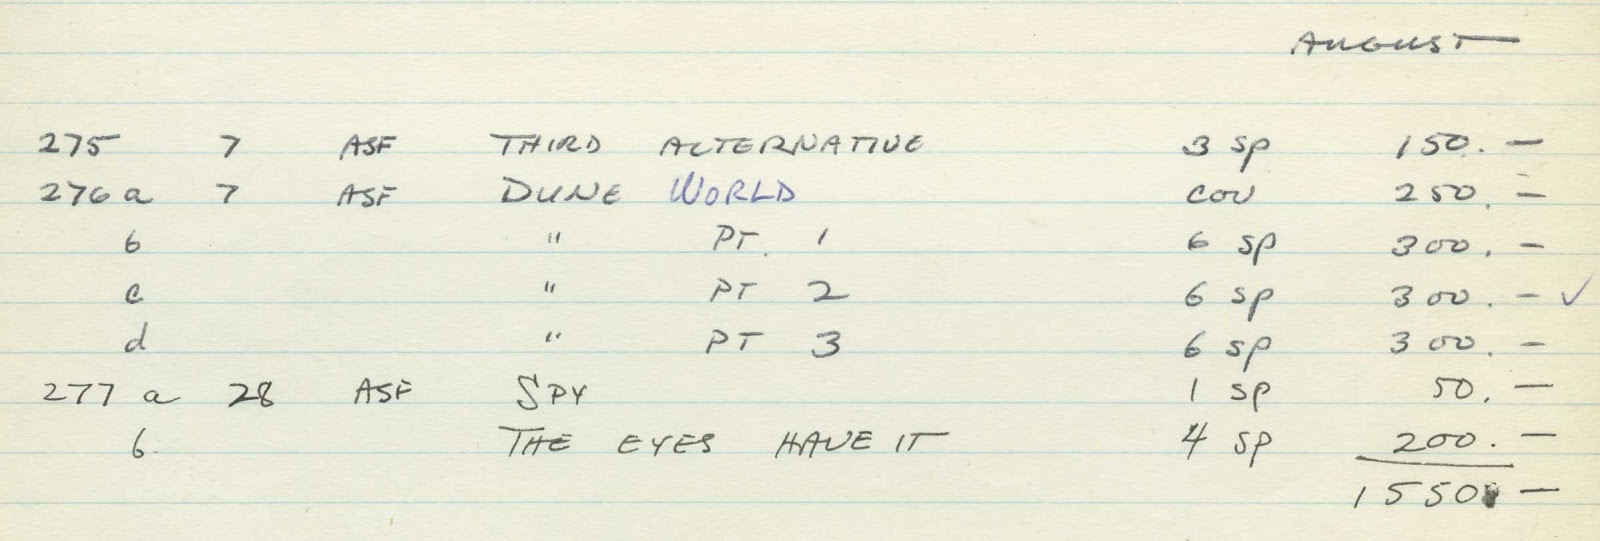 AUGUST
275 7 ASF THIRD ALTERNATIVE 3 SP 150. —
276 a 7 ASF DUNE WORLD COV 250. —
b " PT. 1 6 SP 300. —
c " PT 2 6 SP 300. — ✓
d " PT 3 6 SP 300. —
277 a 28 ASF SPY 1 SP 50. —
b. THE EYES HAVE IT 4 SP 200. —
1550 —